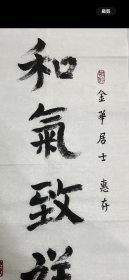 裁剪
金華居士 惠存
和氣致祥